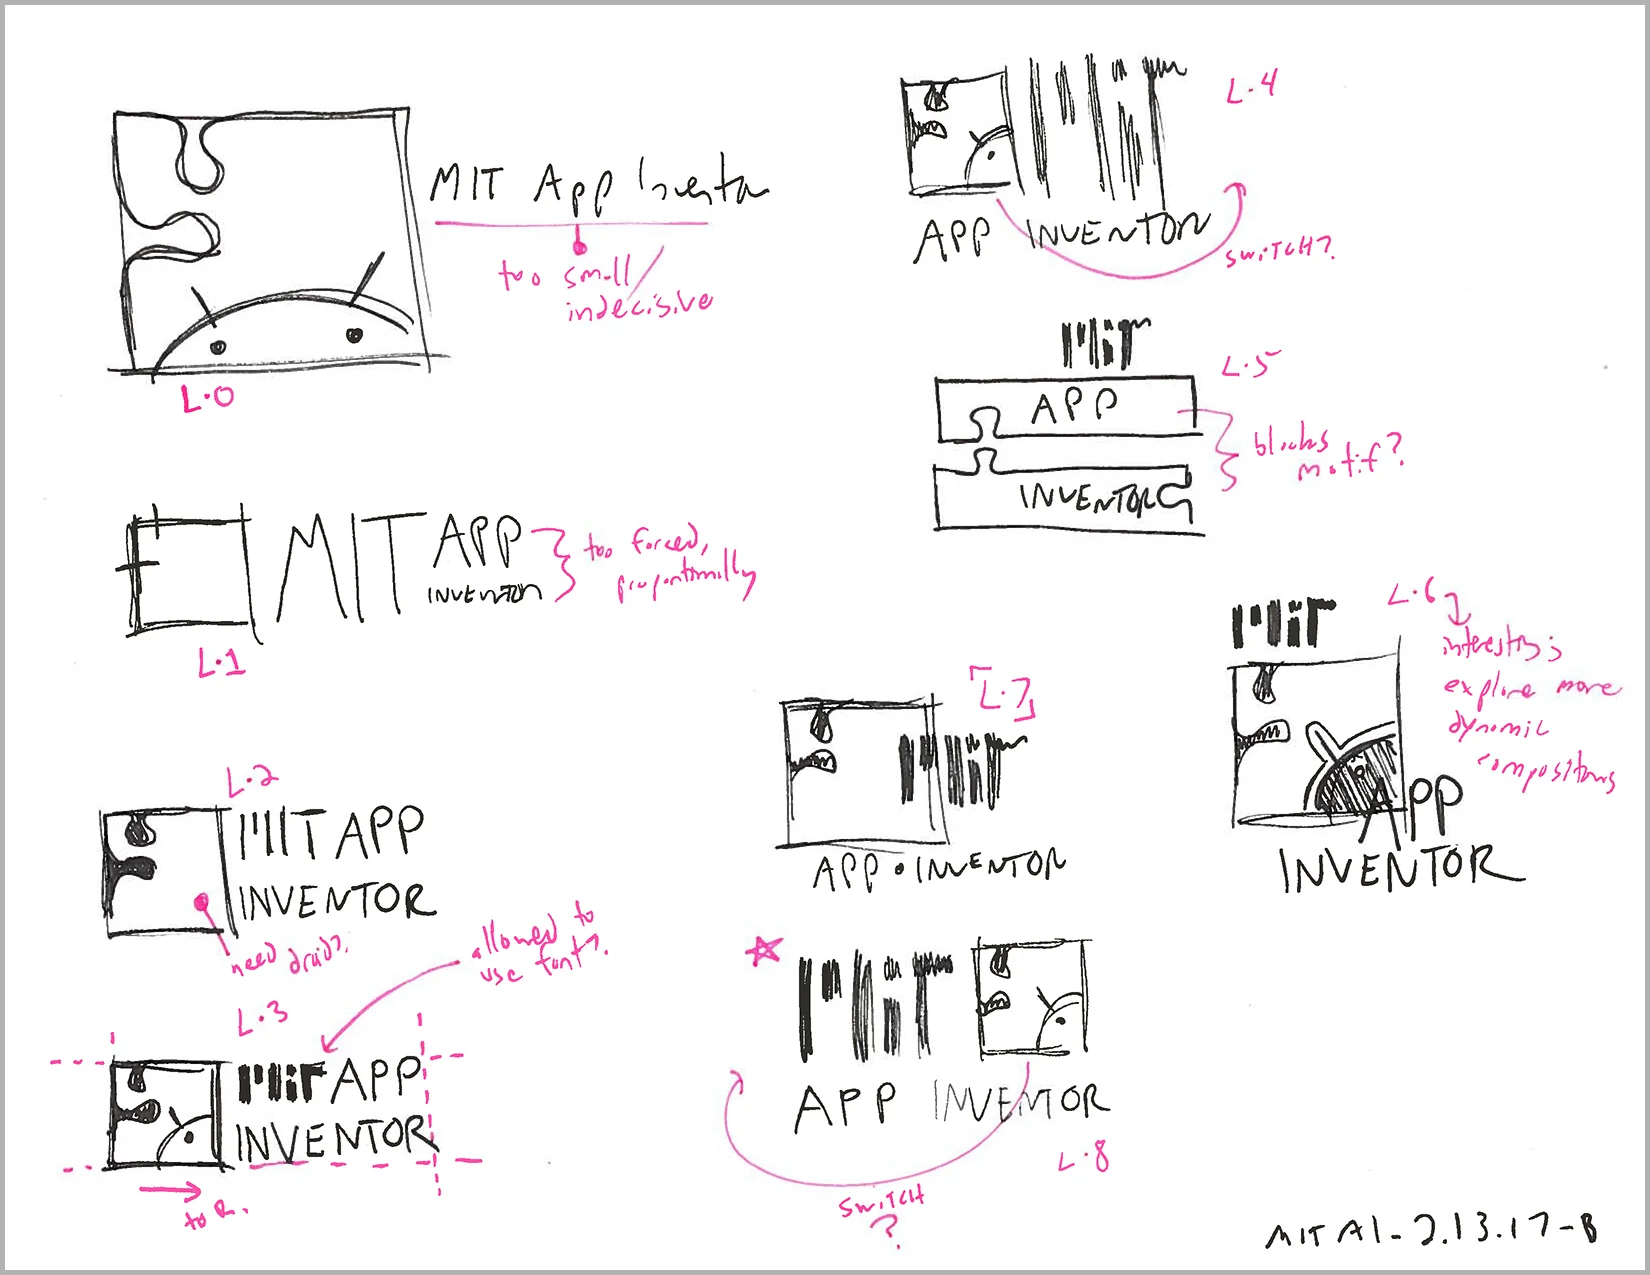 MIT App Inventor
too small/
indecisive
L.0
MIT APP
INVENTOR
too forced,
proportionally
L.1
L.2
MIT APP
INVENTOR
need droid?
allowed to
use font?
L.3
MIT APP
INVENTOR
to R.
L.4
MIT
APP INVENTOR
switch?
MIT
L.5
APP
INVENTOR
blocks
motif?
MIT
L.6
interesting;
explore more
dynamic
compositions
APP
INVENTOR
[L.7]
MIT
APP • INVENTOR
MIT
APP INVENTOR
L.8
SWITCH
?
MIT AI - 2.13.17 - B